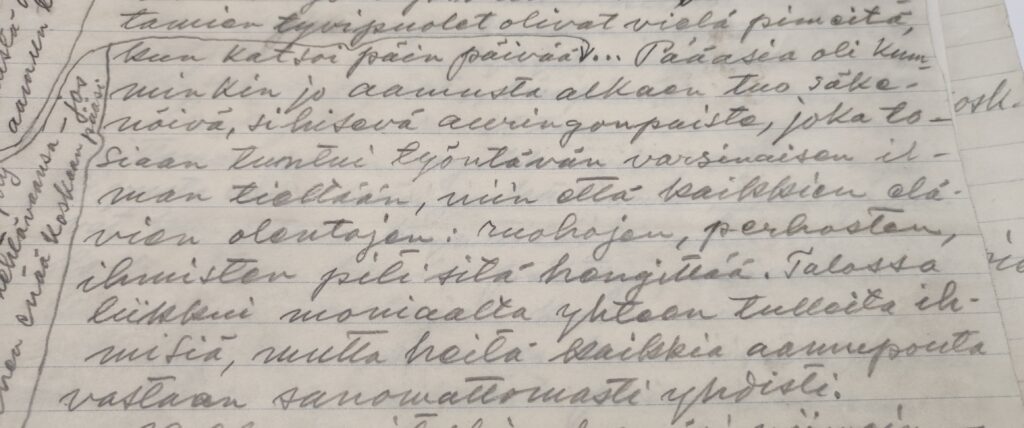 tamien tyvipuolet olivat vielä pimeitä,
kun katsoi päin päivää... Pääasia oli kum-
minkin jo aamusta alkaen tuo säke-
nöivä, sihisevä auringonpaiste, joka to-
siaan tuntui työntävän varsinaisen il-
man tieltään, niin että kaikkien elä-
vien olentojen: ruohojen, perhosten,
ihmisten piti sitä hengittää. Talossa
liikkui moniaalta yhteen tulleita ih-
misiä, mutta heitä kaikkia aamupouta
vastaan sanomattomasti yhdisti.
enää koskaan päässyt
jos